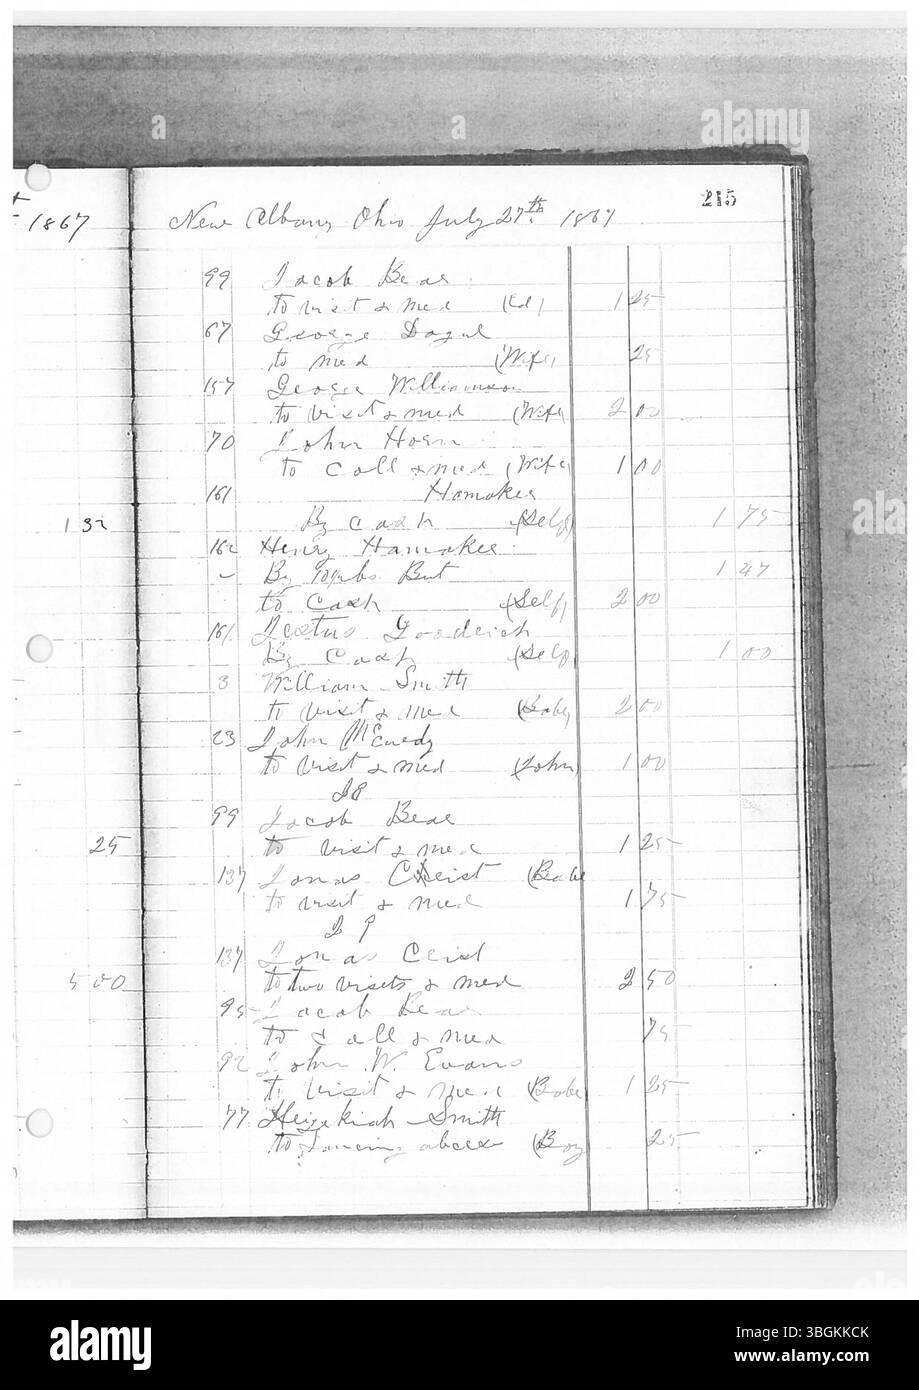 1867
215
New Albany Ohio July 27th 1867
99 Jacob Bear
to visit & med (Ed) 1 25
67 George Dague
to med (Wife) 25
157 George Williamson
to visit & med (Wife) 2 00
70 John Horn
to call & med (Wife) 1 00
161 Hamaker
1 32
By Cash (Self) 1 75
162 Henry Hamaker
By But 1 47
to Cash (Self) 2 00
161 Festus Goodrich
By Cash (Self) 1 00
3 William Smith
to visit & med (Babe) 2 00
23 John McCurdy
to visit & med (John) 1 00
28
99 Jacob Bear
25
to visit & med 1 25
137 Jonas Cleist (Babe
to visit & med 1 75
29
137 Jonas Cleist
5 00
to two visits & med 2 50
95 Jacob Bear
to Call & med 75
92 John W. Evans
to visit & med (Babe) 1 25
77 Hezekiah Smith
to Lancing abcess (Boy 25
alamy
Image ID: 3BGKKCK
www.alamy.com